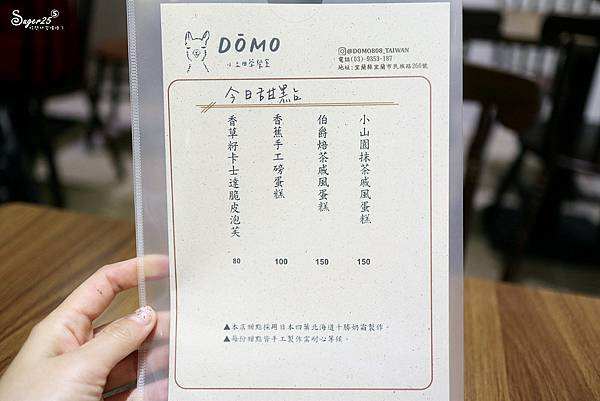 Sager25
DŌMO
小山田茶餐室
@DOMO808_TAIWAN
電話(03)-9353-187
地址:宜蘭縣宜蘭市民族路260號
今日甜點
小山園抹茶戚風蛋糕
150
伯爵焙茶戚風蛋糕
150
香蕉手工磅蛋糕
100
香草籽卡士達脆皮泡芙
80
▲本店甜點採用日本四葉北海道十勝奶霜製作。
▲每份甜點皆手工製作需耐心等候。